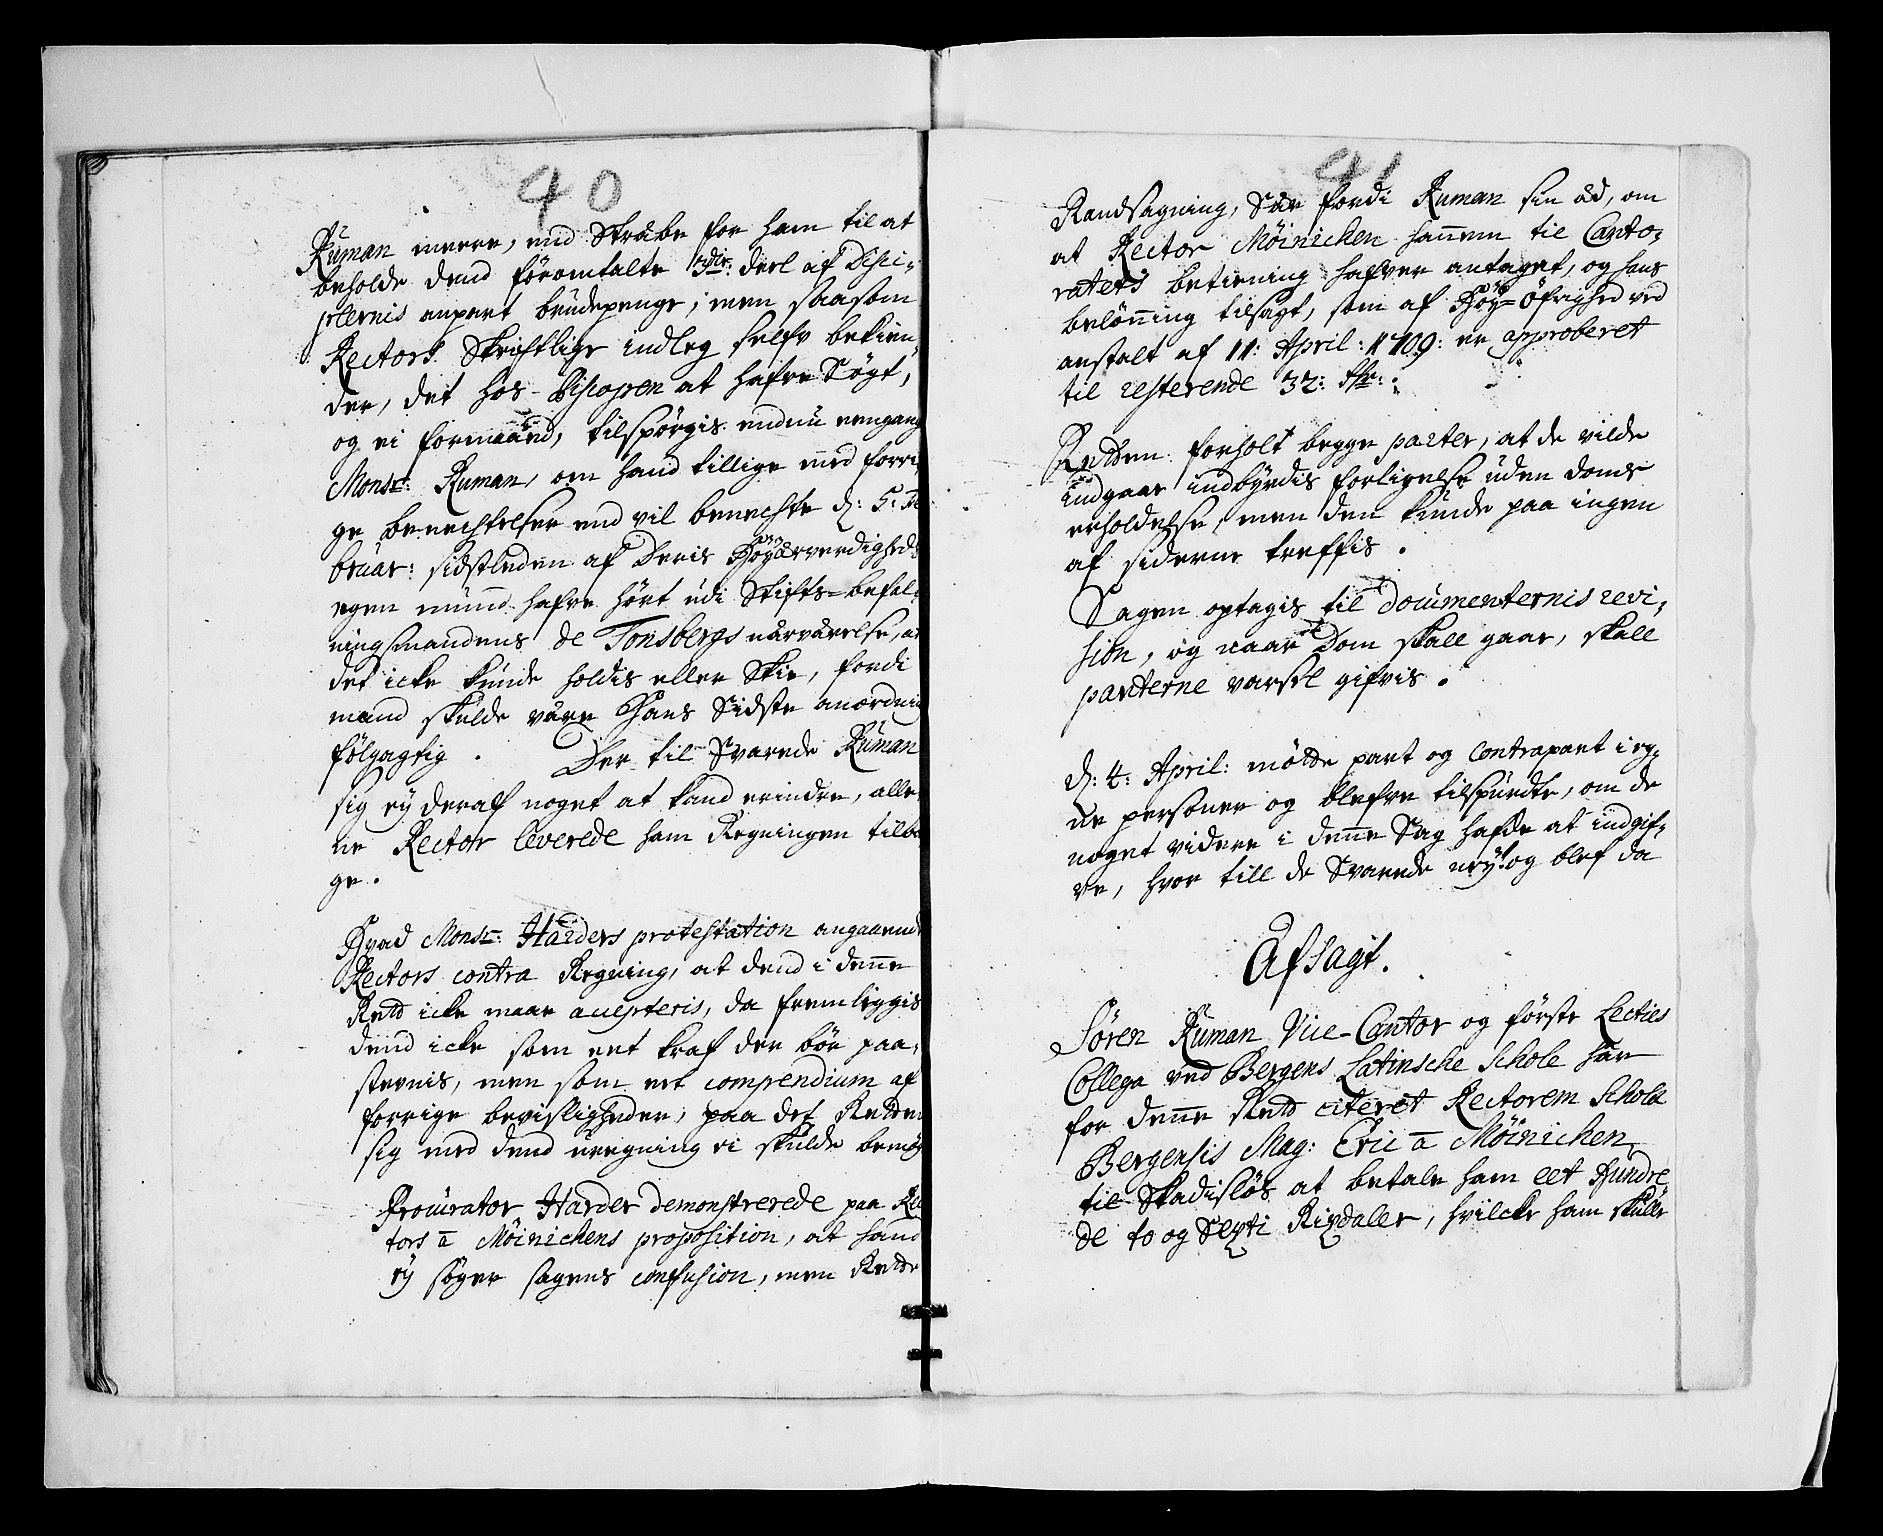 40
Ruman meere, end Skråbe for ham til at
beholde dend föromtalte 3die deel af Disci-
plernis anpart brudepenge; men saasom
Rectors Skriftlige indleg selfv bekien-
der, det hos Bispen at hafve Sögt,
og ei formaaed, tilspörgis endnu eengang
Monsr: Ruman, om hand tillige med forri-
ge benechtelser end vil benechte d: 5: Fe
bruar: sidstleden af Deris Höyærverdigheds
egen mund hafve hört udi Stifts-befal-
ningsmandens de Tonsbergs nærværelse, at
det icke kunde holdis eller Skie, fordi
mand skulde være Hans Sidste anordning
fölgagtig. Der til Svarede Ruman
sig ey deraf noget at kand erindre, alle-
ne Rector leverede ham Regningen tilba
ge.
Hvad Monsr: Harders protestation angaaende
Rectors contra Regning, at dend i denne
Rett icke maae accepteris, da fremliggis
dend icke som eet kraf der bör paa-
stevnis, men som eet compendium af
forrige bevisligheder, paa det Retten
sig med dend uregning ei skulde bemöy
Procurator Harder demonstrerede paa Rec
tors a Möinichens proposition, at hand
ey söger sagens confusion, men Rette
41
Randsagning, Saa fordi Ruman sin æd, om
at Rector Möinichen hannem til Canto-
ratets betiening hafver antaget, og hans
belönning tilsagt, som af Höy-Öfrighed ved
anstalt af 11: April: 1709: er approberet
til resterende 32: Rdr:
Retten forholt begge parter, at de vilde
indgaae indbyrdis forligelse uden doms
erholdelse, men den kunde paa ingen
af siderne treffis.
Sagen optagis til documenternis revi-
sion, og naar Dom skall gaae, skall
parterne varsel gifvis.
d: 4: April: mötte part og contrapart i eg-
ne personer og blefve tilspurdte, om de
noget videre i denne Sag hafde at indgif-
ve, hvor till de Svarede ney og blef da
Afsagt.
Sören Ruman Vice-Cantor og förste Lecties
Collega ved Bergens Latinsche Schole har
for denne Rett citeret Rectorem Scholæ
Bergensis Mag: Eric a Möinichen
til Skadislös at betale ham eet Hundre
de to og Sexti Rixdaler, hvilcke ham skulle